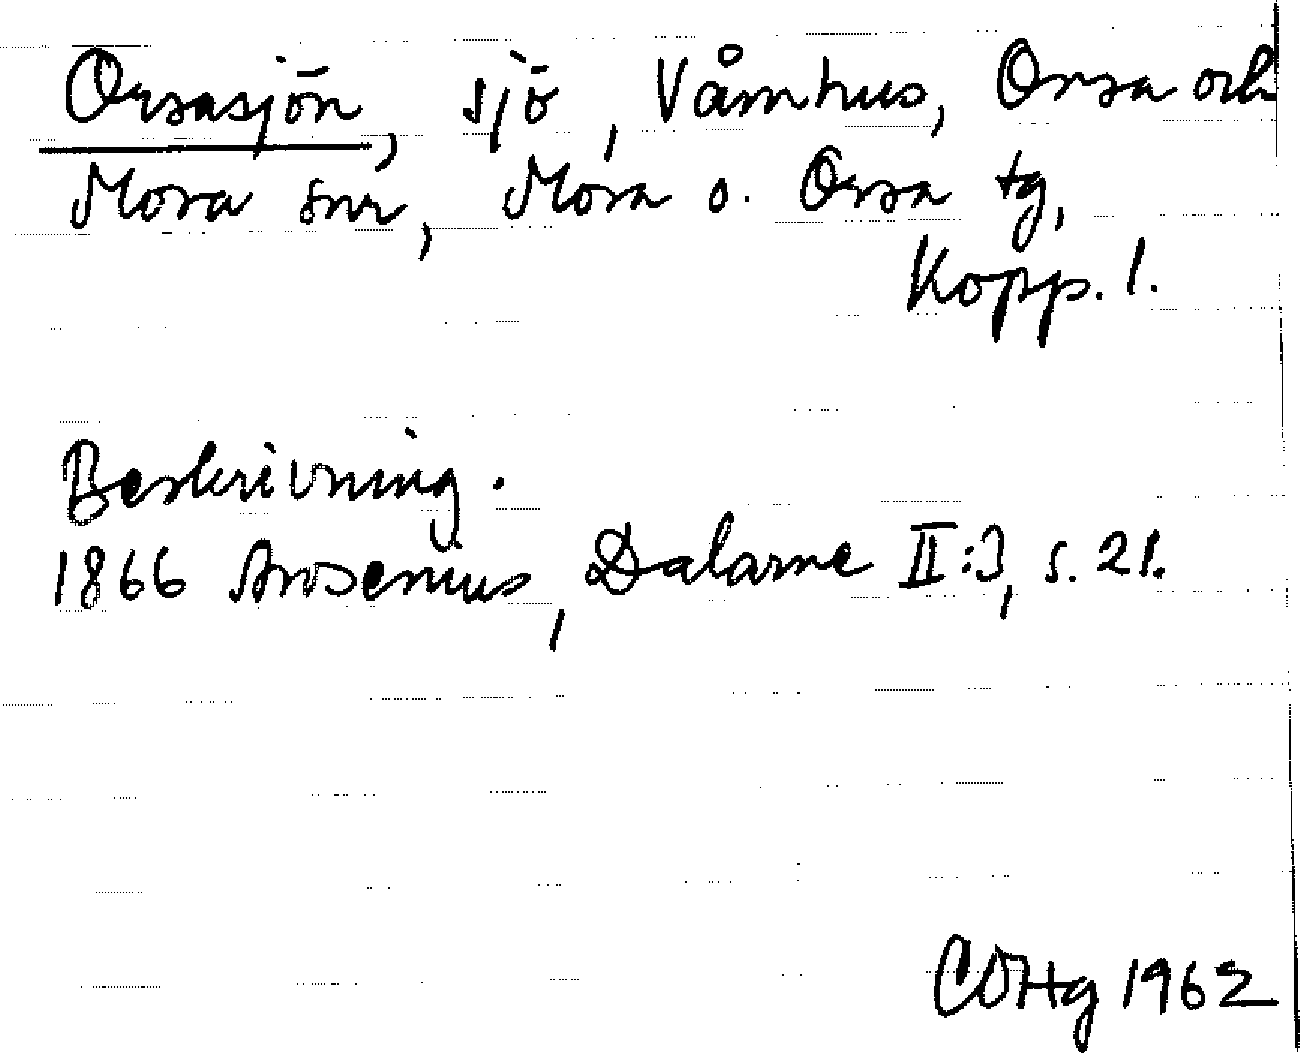 Orsasjön, sjö, Våmhus, Orsa och
Mora snr, Mora o. Orsa tg,
Kopp. l.
Beskrivning.
1866 Arosenius, Dalarne II:3, s. 21.
COHg 1962